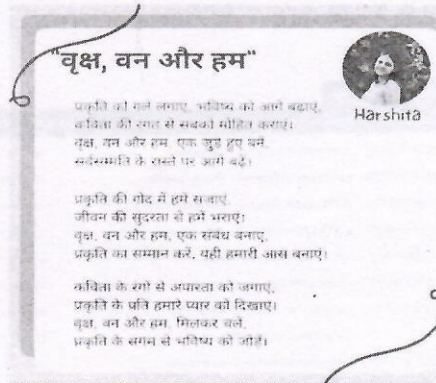 "वृक्ष, वन और हम"
Harshita
प्रकृति को गले लगाएं, भविष्य को आगे बढ़ाएं,
कविता की रंगत से सबको मोहित कराएं।
वृक्ष, वन और हम, एक जुड़े हुए बनें,
सर्वसम्मति के रास्ते पर आगे बढ़ें।
प्रकृति की गोद में हमें सजाएं,
जीवन की सुंदरता से हमें भराएं।
वृक्ष, वन और हम, एक संबंध बनाएं,
प्रकृति का सम्मान करें, यही हमारी आस बनाएं।
कविता के रंगों से अपारता को जगाएं,
प्रकृति के प्रति हमारे प्यार को दिखाएं।
वृक्ष, वन और हम, मिलकर चलें,
प्रकृति के संगम से भविष्य को जोड़ें।